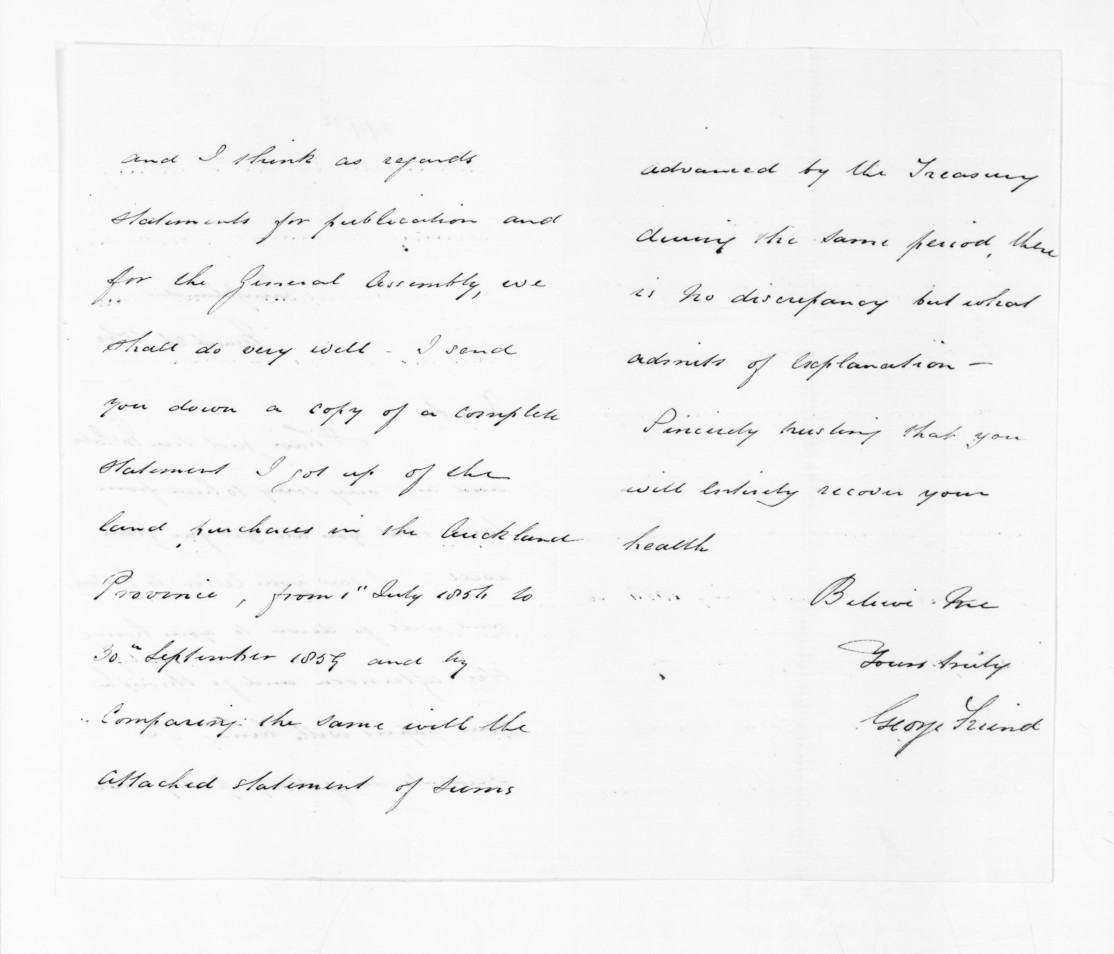 and I think as regards
statements for publication and
for the General Assembly, we
shall do very well - I send
you down a copy of a complete
statement I got up of the
land purchases in the Auckland
Province, from 1st July 1856 to
30th September 1859 and by
Comparing the same with the
attached statement of sums
advanced by the Treasury
during the same period, there
is no discrepancy but what
admits of Explanation -
Sincerely trusting that you
will Entirely recover your
health
Believe me
Yours truly
George Friend